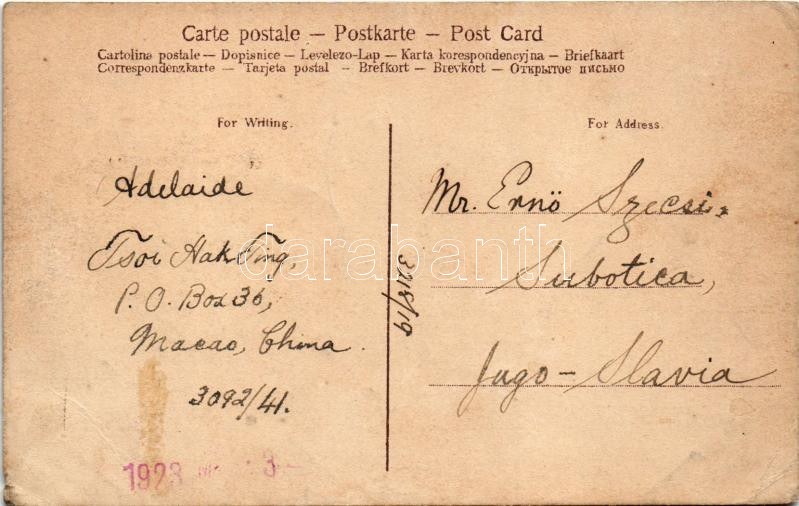 Carte postale — Postkarte — Post Card
Cartolina postale — Dopisnice — Levelezo-Lap — Karta korespondencyjna — Briefkaart
Correspondenzkarte — Tarjeta postal — Brefkort — Brevkort — Открытое письмо
For Writing.
Adelaide
Tsoi Hak Ting,
P. O. Box 36,
Macao, China.
3092/41.
1923
3
For Address.
Mr. Ernö Szecsi,
Subotica,
Jugo-Slavia
darabanth